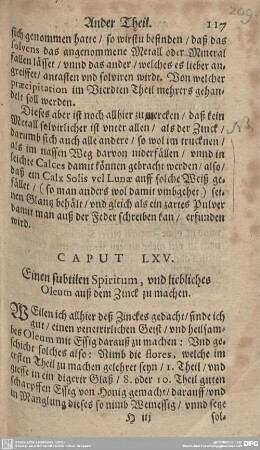 Ander Theil. 117
209.
sich genommen hatte / so wirstu befinden / daß das
solvens das angenommene Metall oder Mineral
fallen lässet / vnnd das ander / welches es lieber an-
greiffet / antasten vnd solviren wirdt. Von welcher
præcipitation im Vierdten Theil mehrers gehan-
delt soll werden.
Dieses aber ist noch allhier zu mercken / daß kein
Metall solvirlicher ist vnter allen / als der Zinck /
darumb sich auch alle andere / so wol im trucknen /
als im nassen Weg darvon niderfällen / vnnd in
leichte Calces damit können gebracht werden / also /
daß ein Calx Solis vel Lunæ auff solche Weiß ge-
fället / (so man anders wol damit vmbgehet) sei-
nen Glantz behält / vnd gleich als ein zartes Pulver
damit man auß der Feder schreiben kan / erfunden
wird.
NB.
CAPUT LXV.
Einen subtilen Spiritum, vnd liebliches
Oleum auß dem Zinck zu machen.
WEilen ich allhier deß Zinckes gedacht / finde ich
gut / einen venetrirlichen Geist / vnd heilsam-
bes Oleum mit Essig darauß zu machen: Vnd ge-
schicht solches also: Nimb die flores, welche im
ersten Theil zu machen gelehret seyn / 1. Theil / vnd
giesse in ein digerir Glaß / 8. oder 10. Theil guten
scharpffen Essig von Honig gemacht / darauff / vnd
in Manglung dieses so nimb Weinessig / vnnd setze
H iij sol-